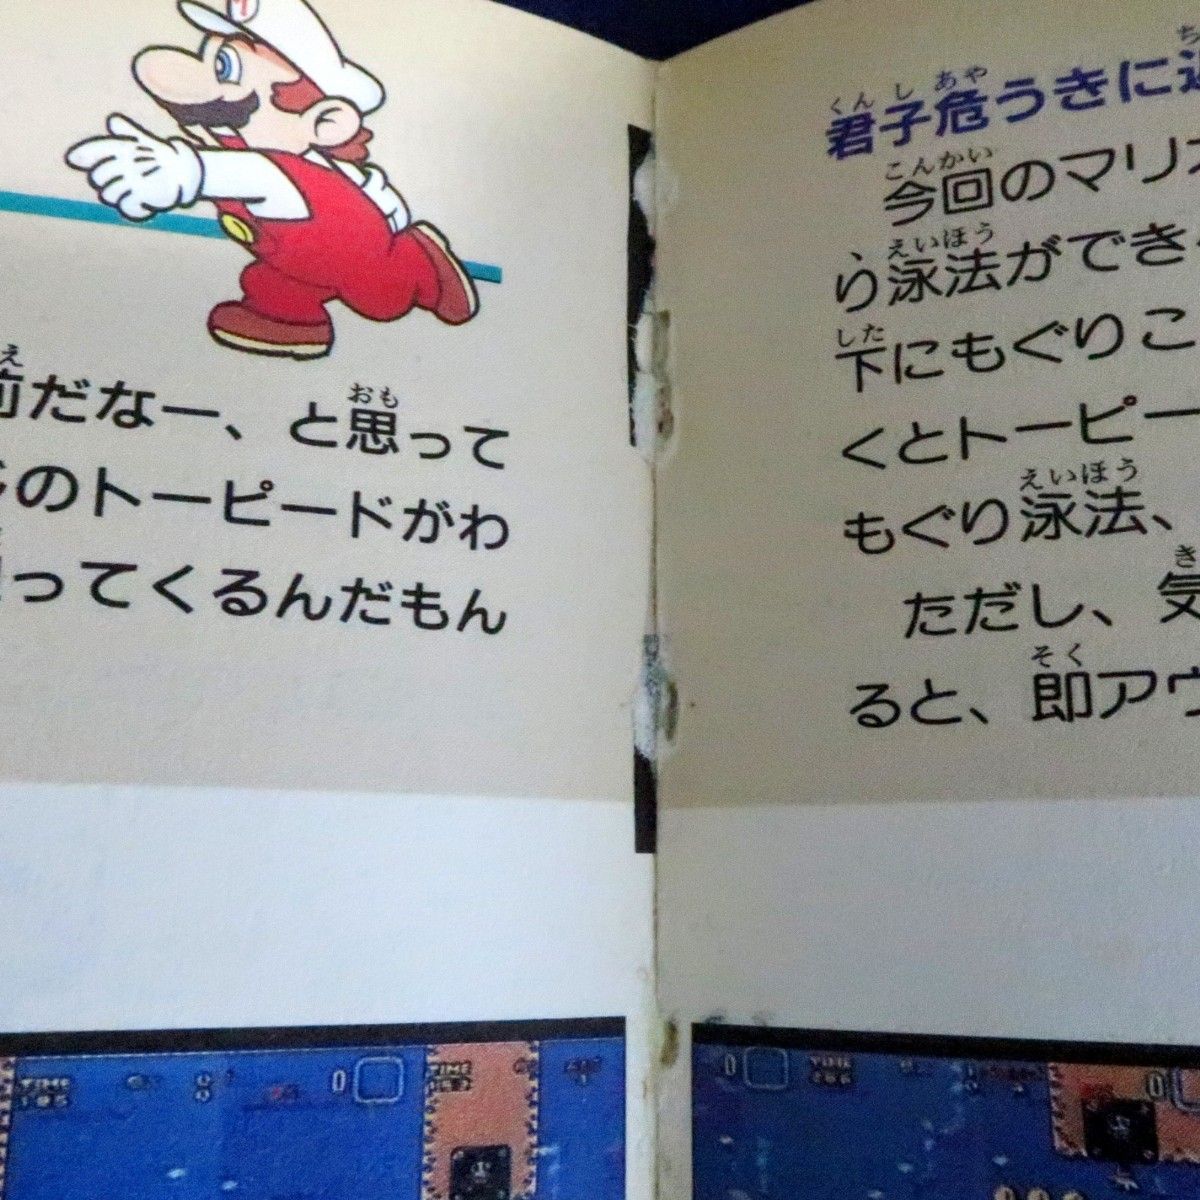 だなー、と思って
のトーピードがわ
ってくるんだもん
君子危うきに
今回のマリ
り泳法ができ
下にもぐりこ
くとトーピー
もぐり泳法、
ただし、気
ると、即ア
TIME
0
TIME
0
TIME
0